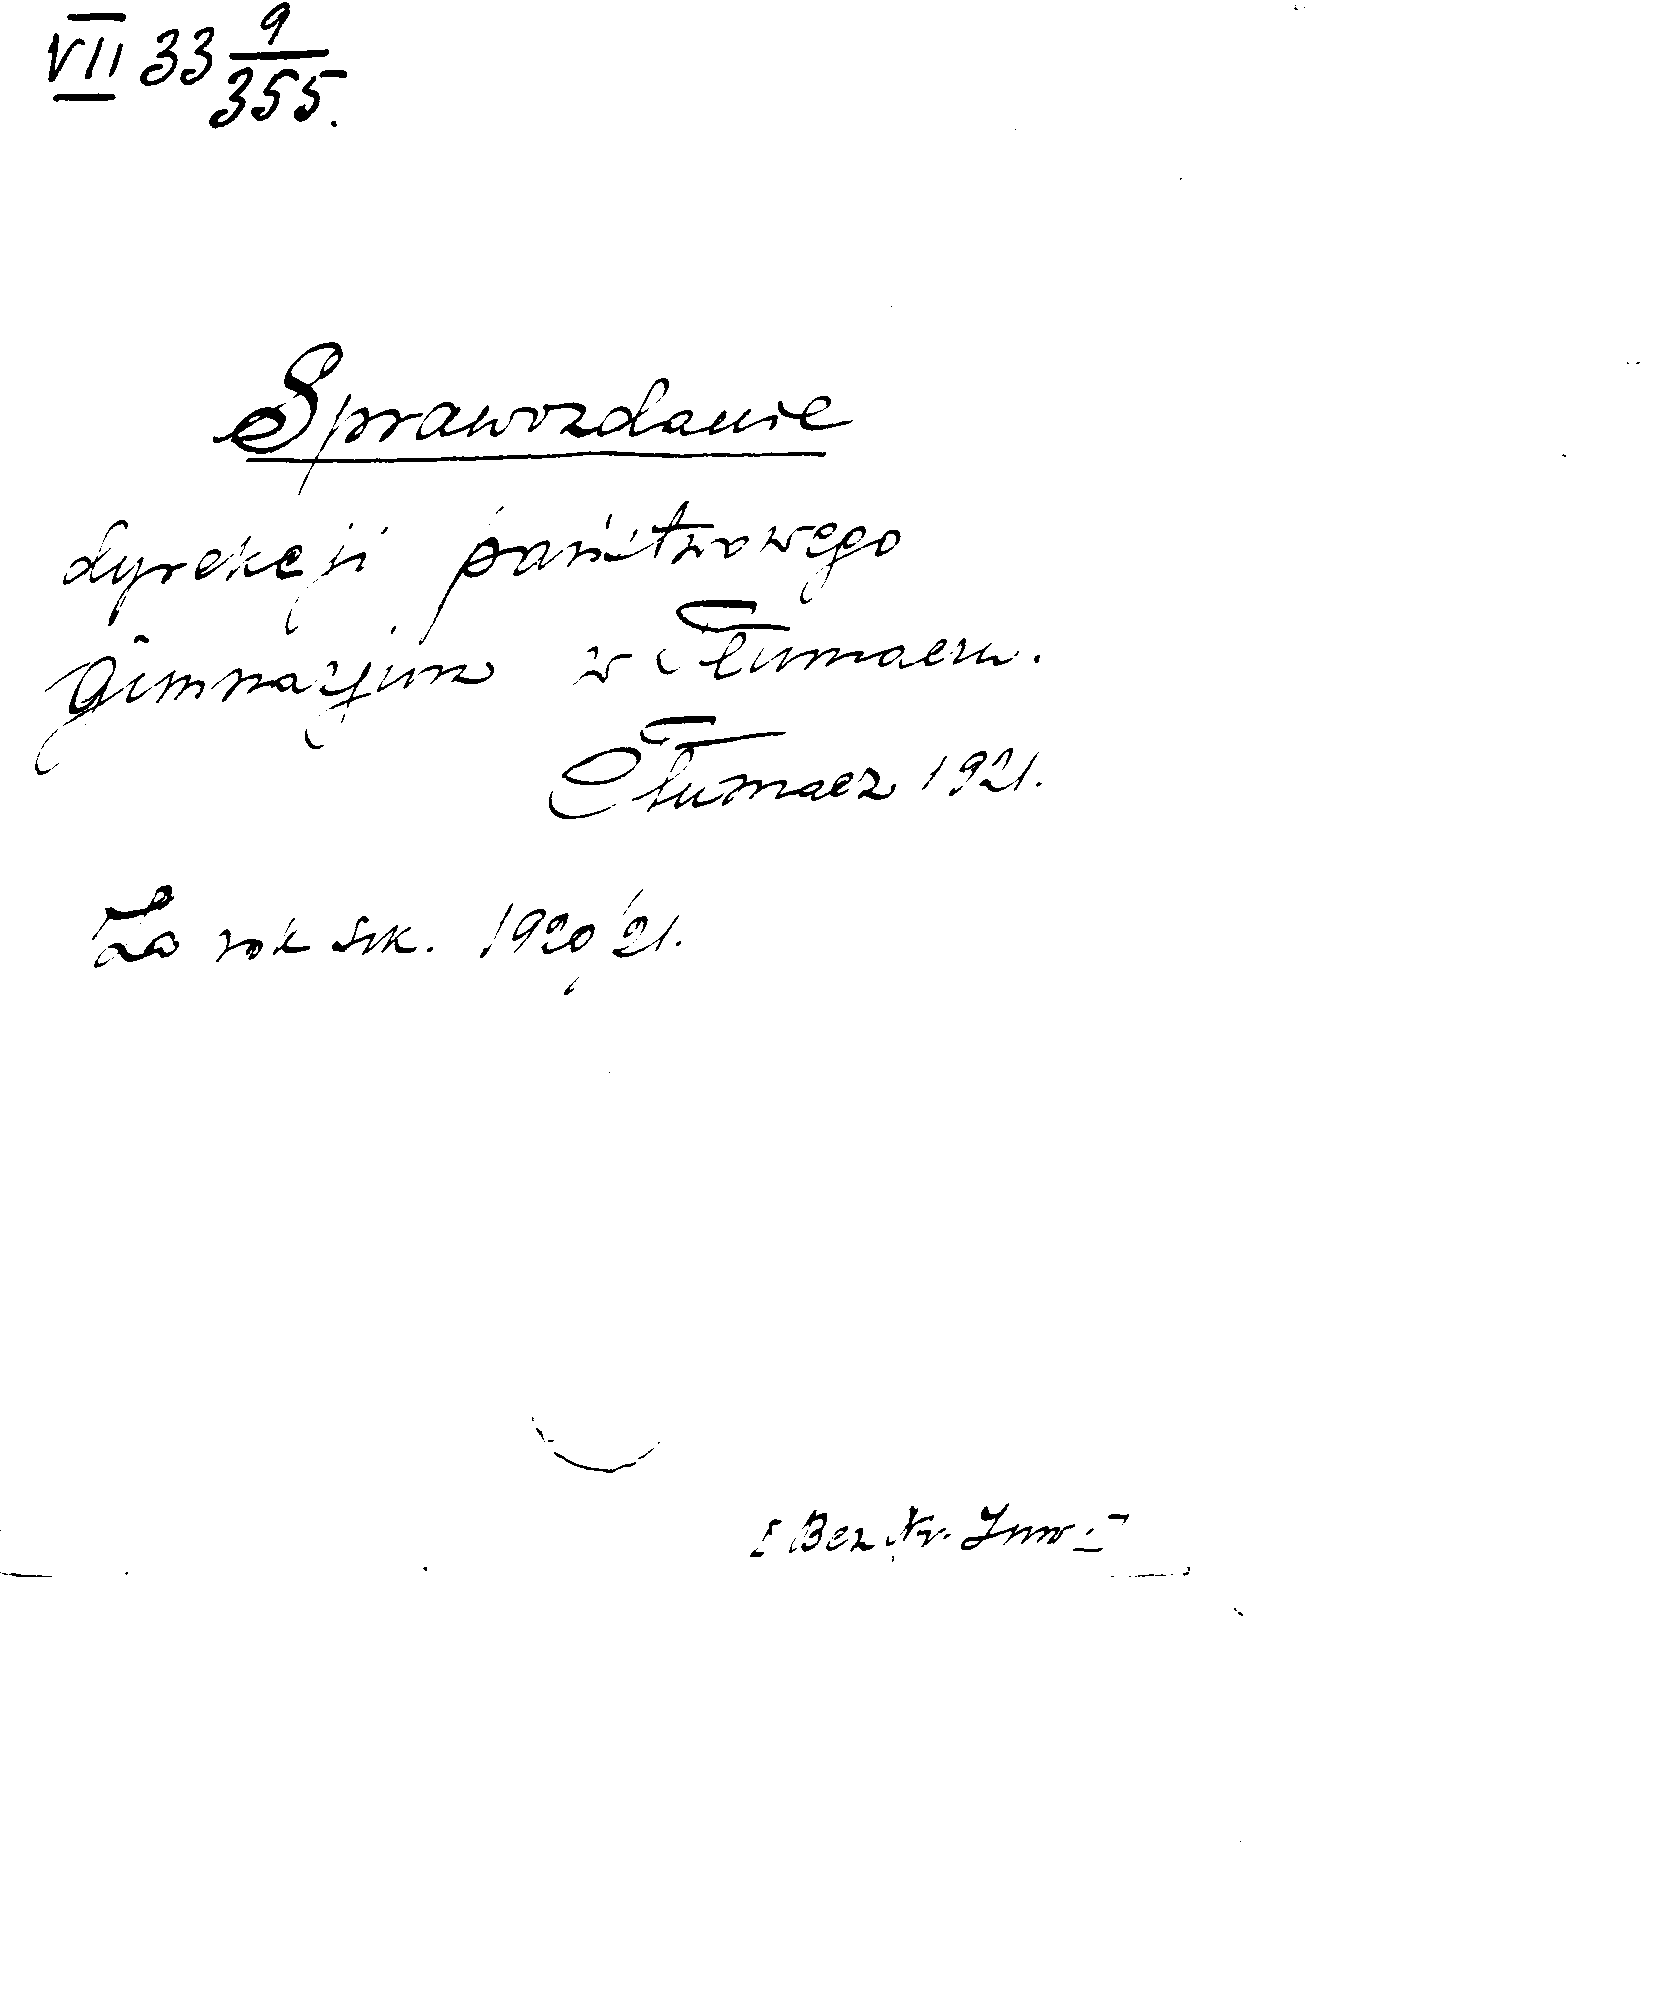 VII 33 9/355.
Sprawozdanie
dyrekcji państwowego
Gimnazjum w Tłumaczu.
Tłumacz 1921.
Za rok szk. 1920/21.
[Bez Nr. Inw.]